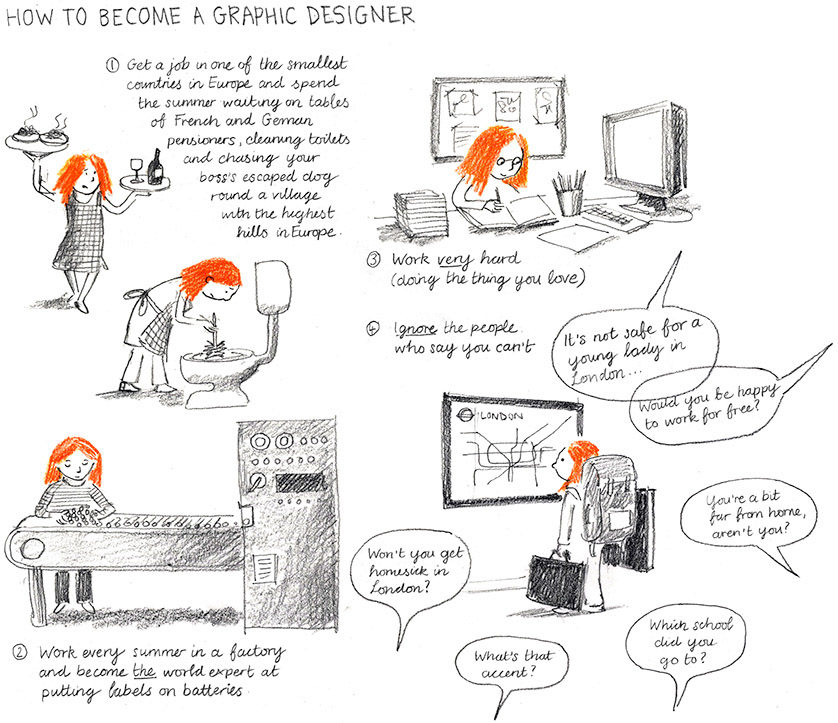 HOW TO BECOME A GRAPHIC DESIGNER
① Get a job in one of the smallest
countries in Europe and spend
the summer waiting on tables
of French and German
pensioners, cleaning toilets
and chasing your
boss's escaped dog
round a village
with the highest
hills in Europe.
② Work every summer in a factory
and become the world expert at
putting labels on batteries.
③ Work very hard
(doing the thing you love)
④ Ignore the people
who say you can't
It's not safe for a
young lady in
London...
Would you be happy
to work for free?
LONDON
You're a bit
far from home,
aren't you?
Won't you get
homesick in
London?
Which school
did you
go to?
What's that
accent?